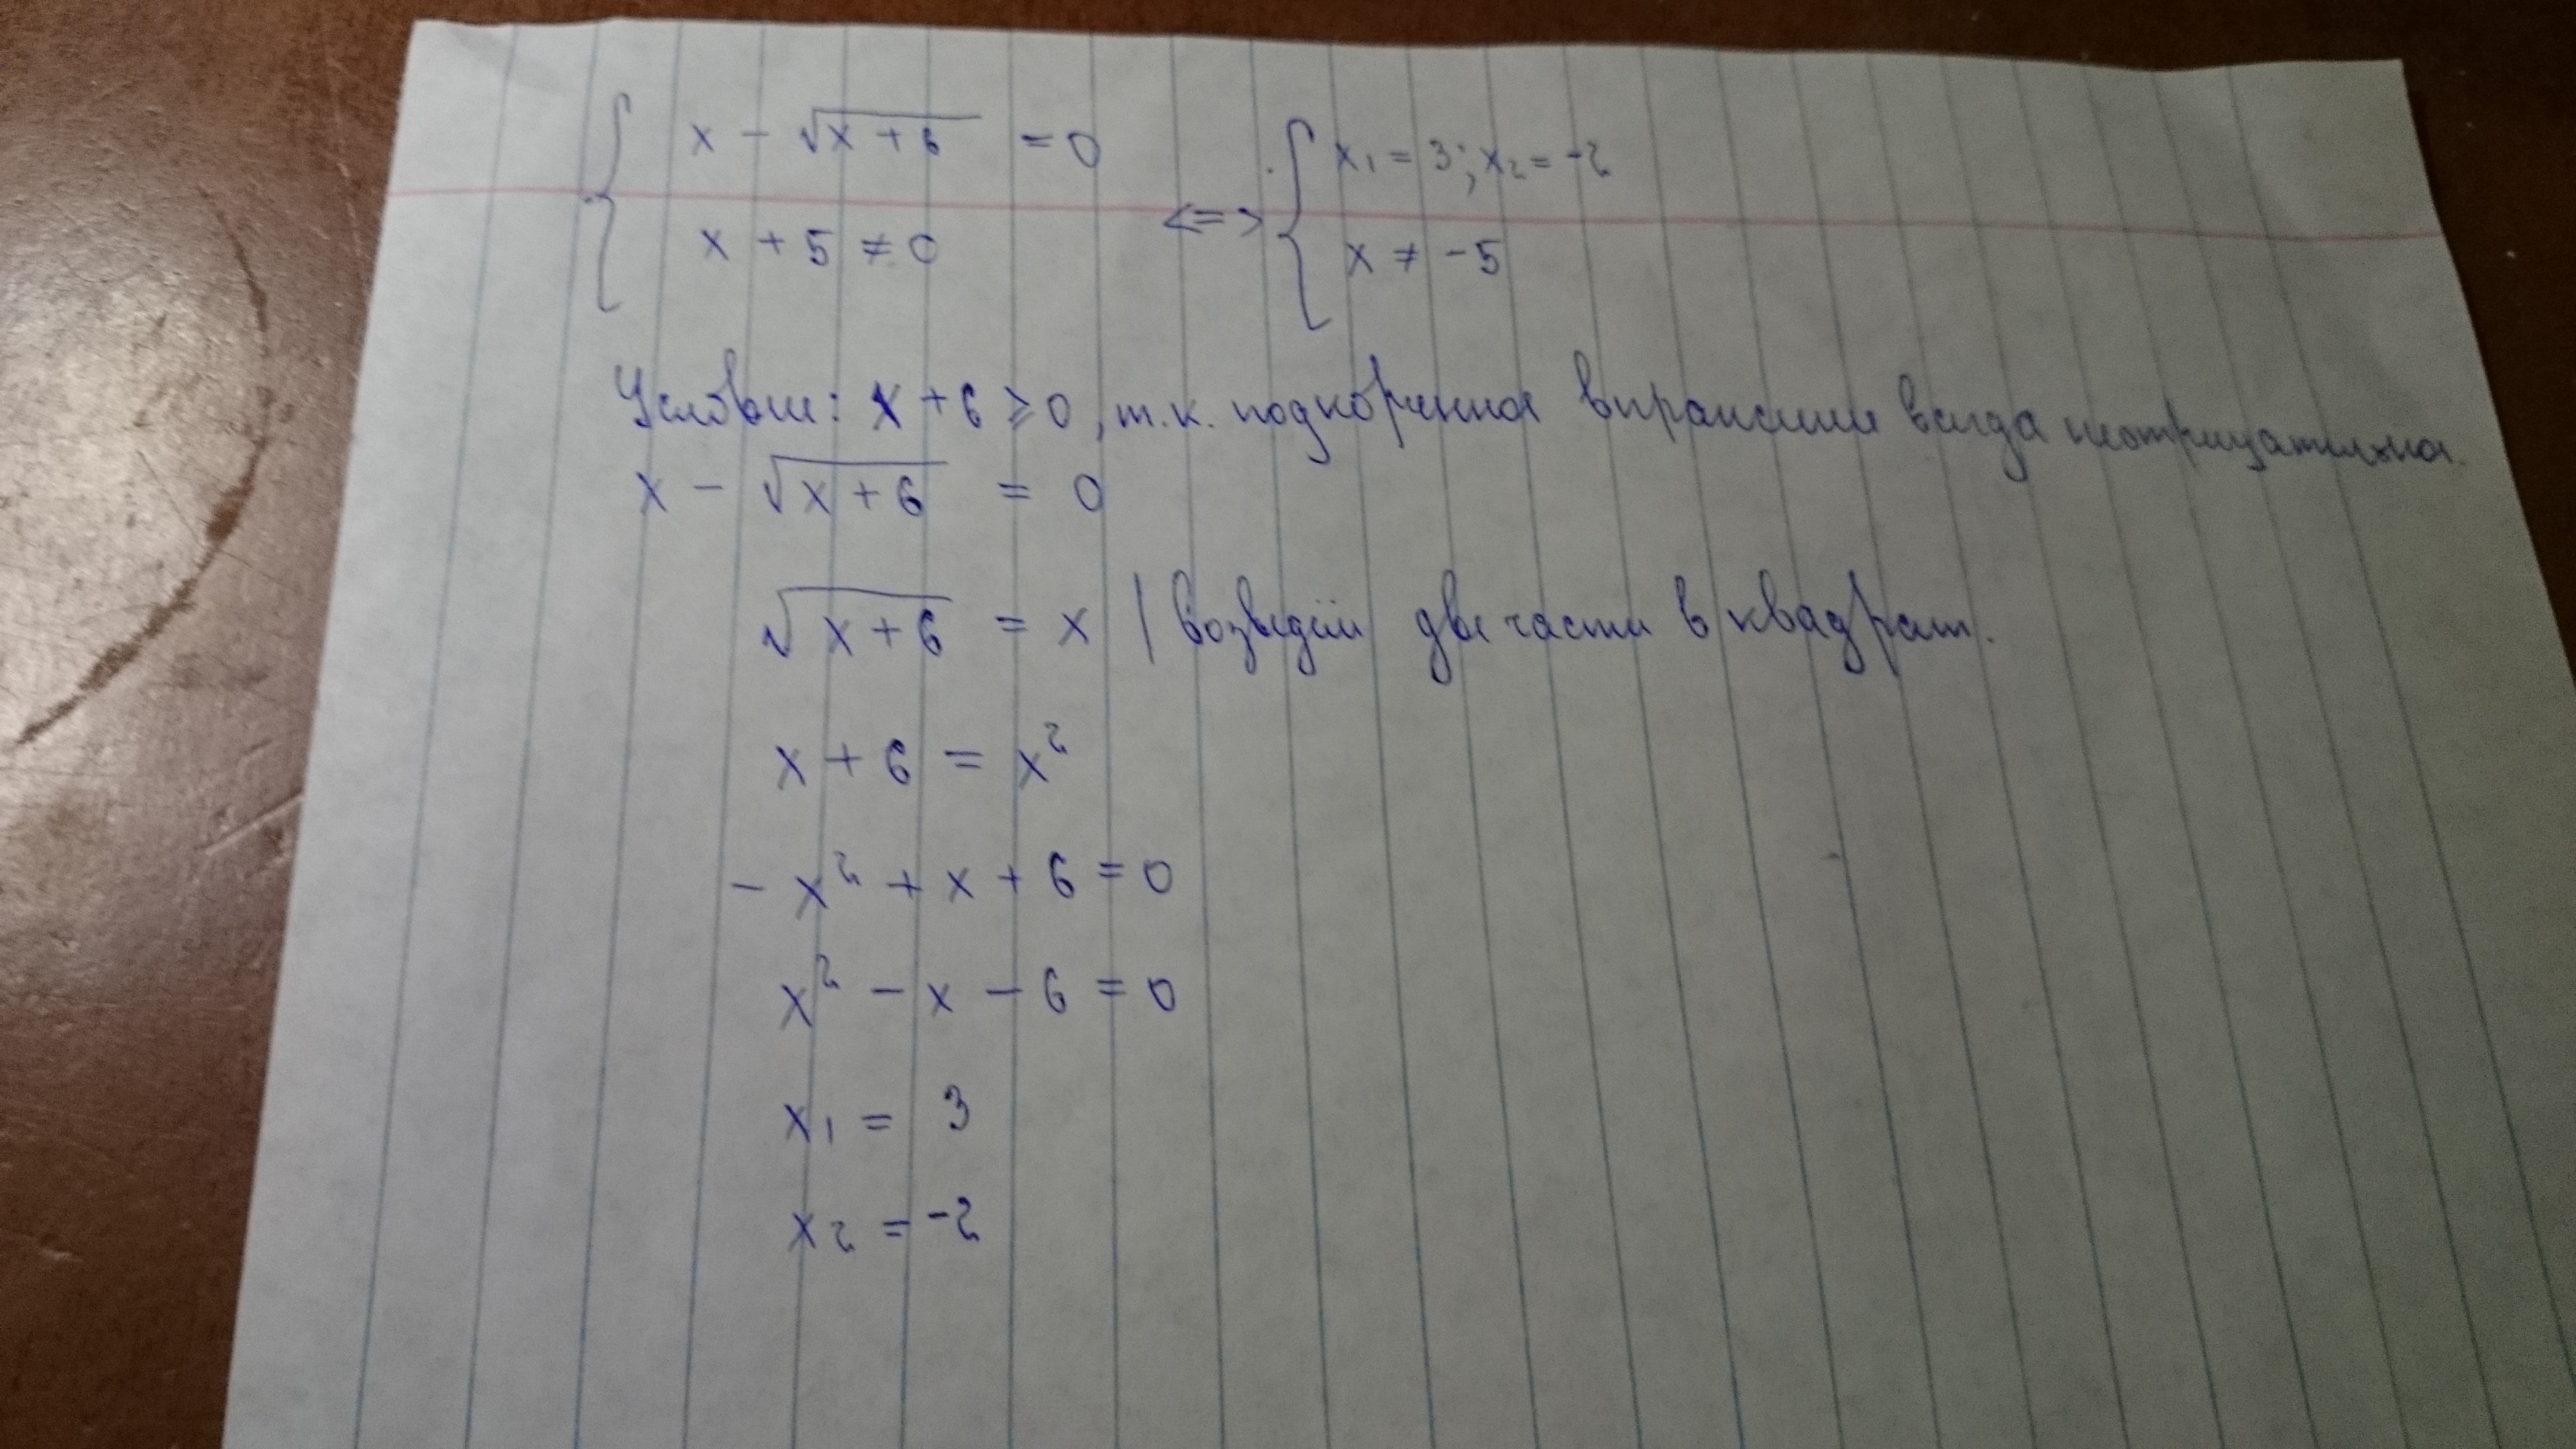 x - √x + 6 = 0 <=> x₁ = 3; x₂ = -2
x + 5 ≠ 0 x ≠ -5
Условие: x + 6 ⩾ 0, т.к. подкоренное выражение всегда неотрицательное.
x - √x + 6 = 0
√x + 6 = x | возведём две части в квадрат.
x + 6 = x²
- x² + x + 6 = 0
x² - x - 6 = 0
x₁ = 3
x₂ = -2